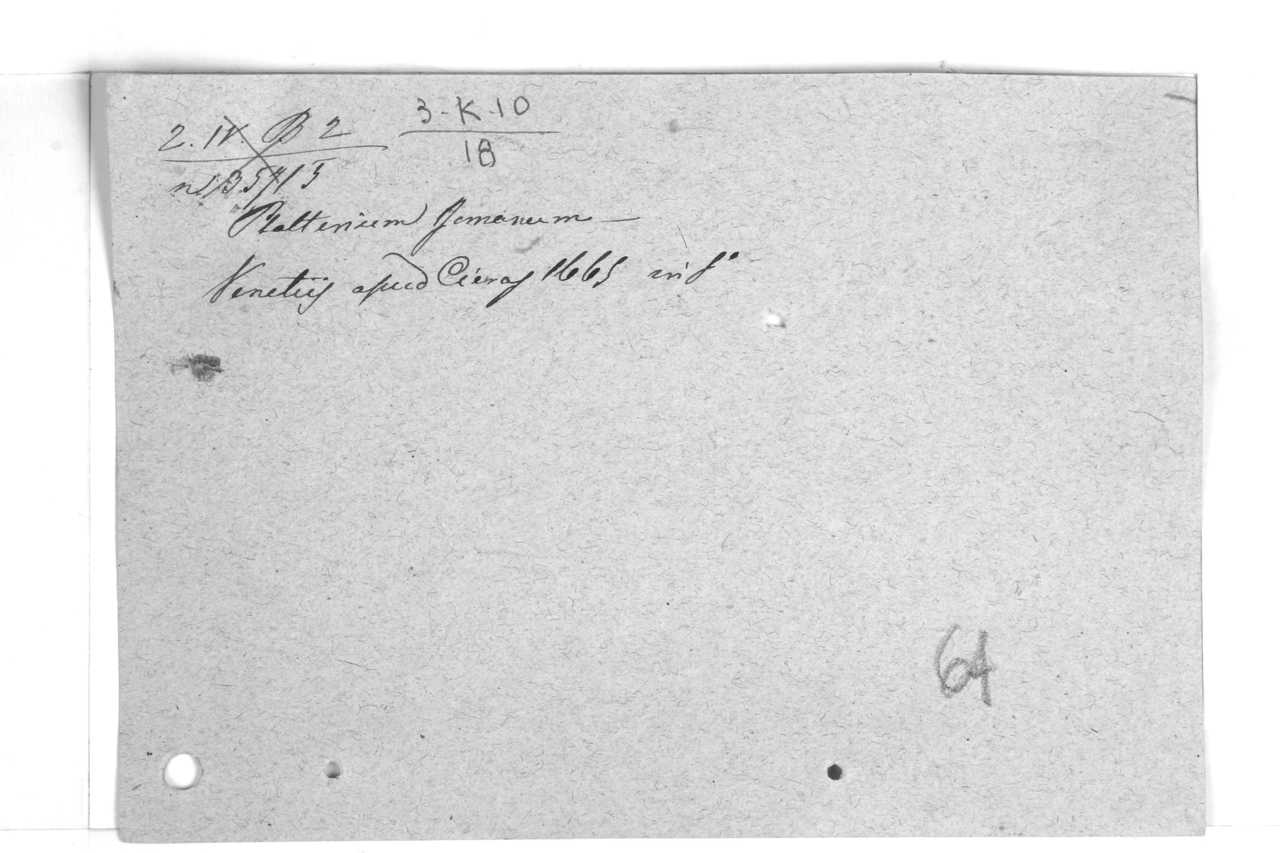 2. IV B 2
3-K-10
18
Psalterium Romanum —
Venetiis apud Cieras 1665 in f°
64